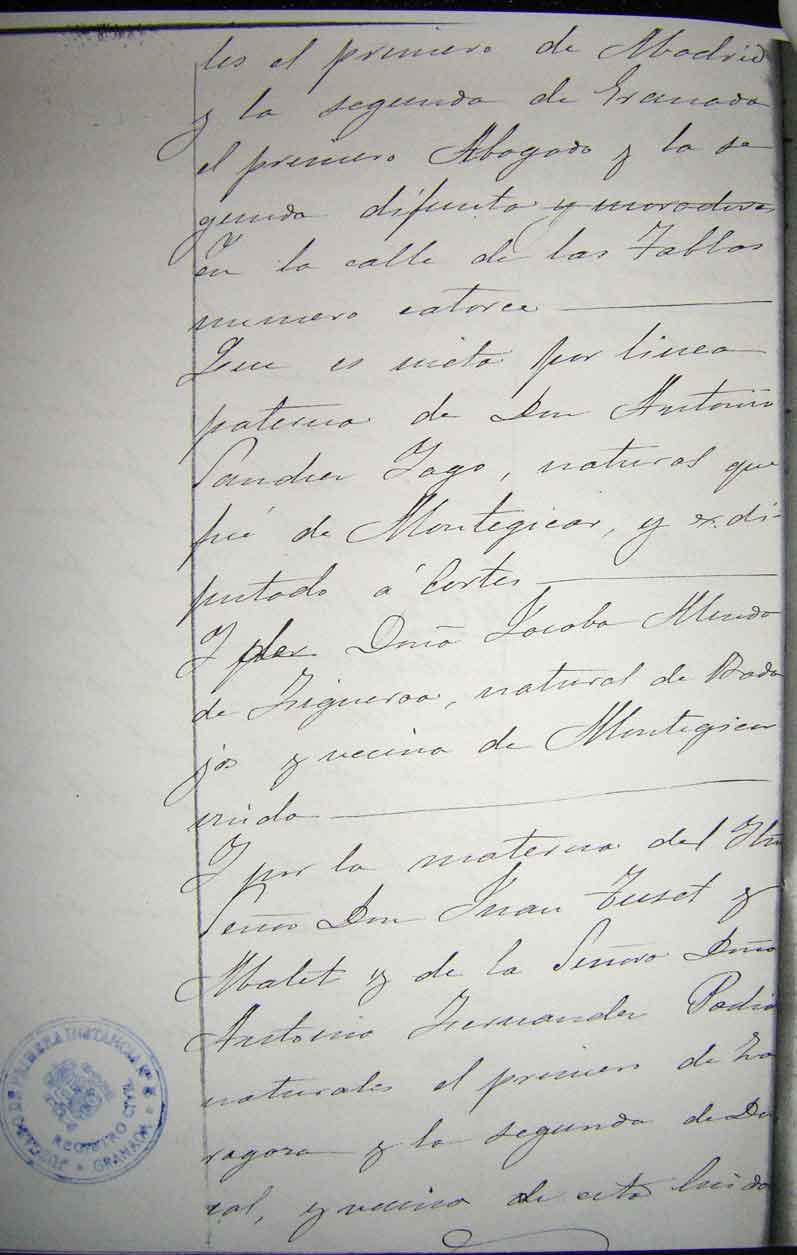 les el primero de Madrid
y la segunda de Granada
el primero Abogado y la se
gunda difunta y moradores
en la calle de las Tablas
numero catorce
Que es nieta por linea
paterna de Don Antonio
Sanchez Yago, natural que
fué de Montegicar, y ex-di-
putado á Cortes
Y por Doña Jacoba
de Figueroa, natural de Bada
joz y vecina de Montegicar
viuda
Y por la materna del Iltmo
Señor Don Juan Tuset y
Malet y de la Señora Doña
Antonia Fernandez
naturales el primero de Za
ragoza y la segunda de
y vecina de esta Ciudad
JUZGADO DE PRIMERA INSTANCIA Nº
REGISTRO CIVIL
GRANADA